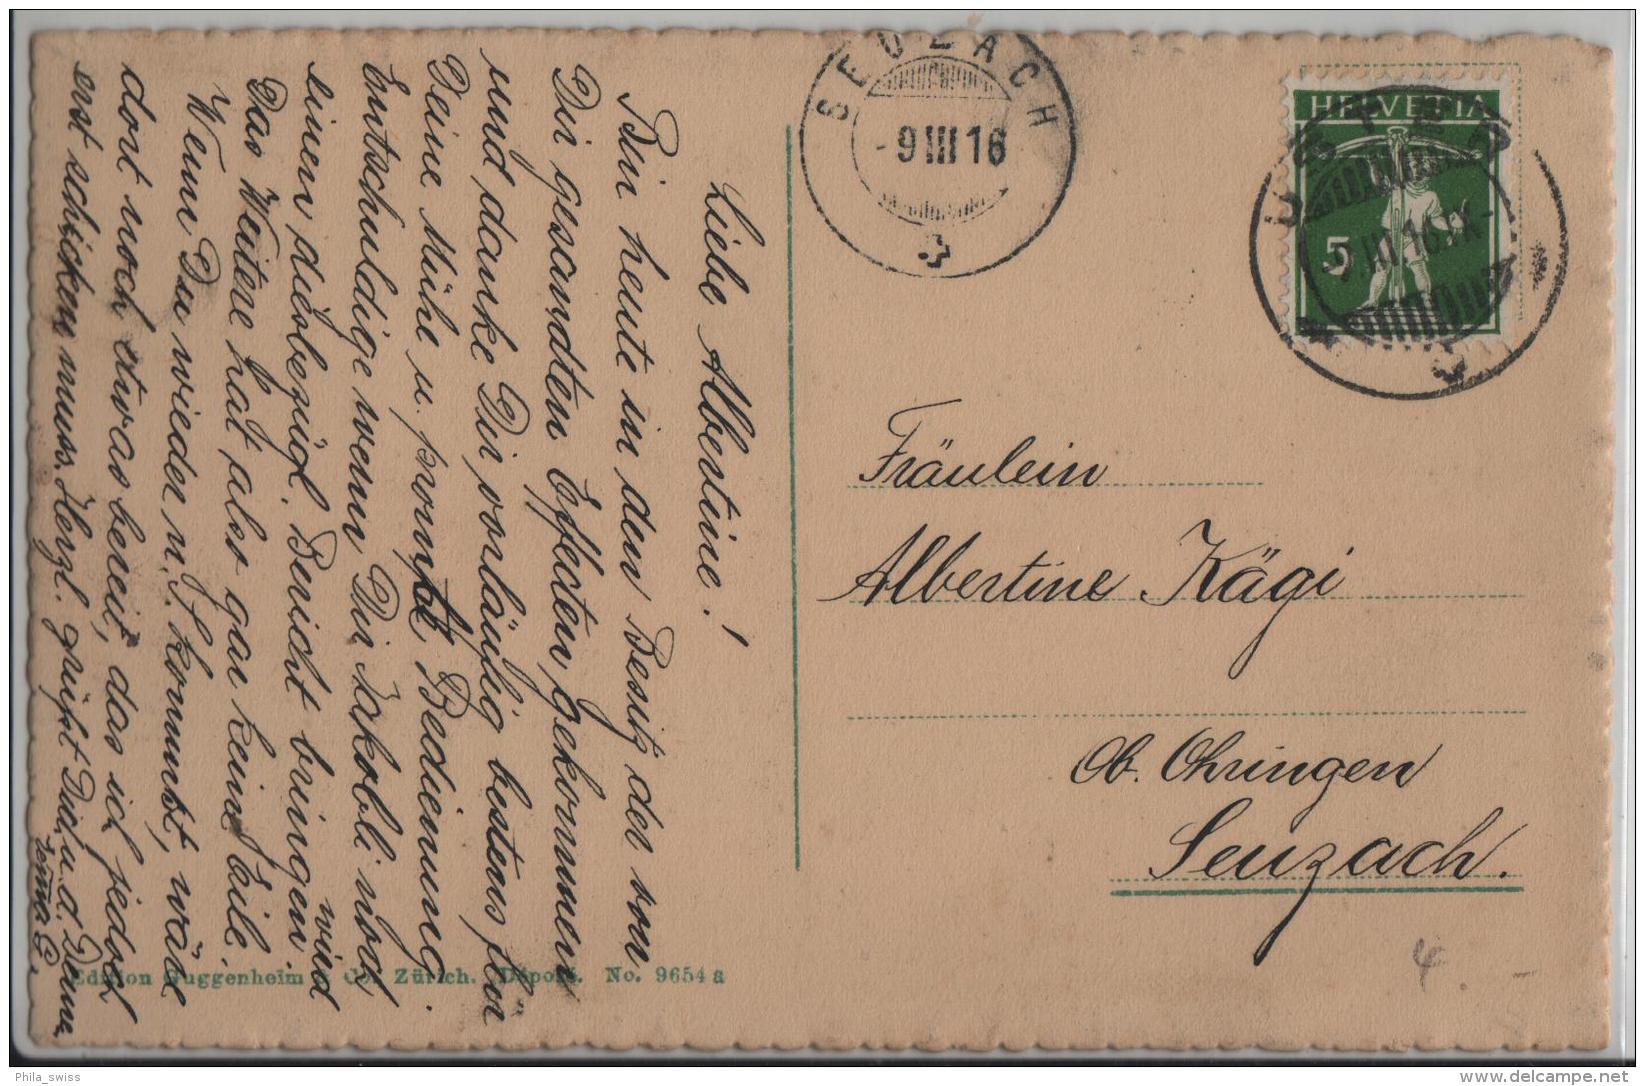 Liebe Albertine!
Bin heute in den Besitz der von
Dir gesandten Effecten gekommen
und danke Dir vorläufig bestens für
Deine Mühe u. prompte Bedienung.
Entschuldige wenn Dir Jakobli noch
einen diesbezügl. Bericht bringen wird
Das Weitere hat aber gar keine Eile.
Wenn Du wieder n. U. kommst, wäre
dort noch etwas bereit, das ich jedoch
erst schicken muss. Herzl. grüsst Dich u. d. Deinen
Edition Guggenheim & Co. Zürich. Déposé. No. 9654 a
SEUZACH
-9 III 16
HELVETIA
5
USTER
III 16 IX-
Fräulein
Albertine Kägi
Ob. Ohringen
Seuzach.
Phila_swiss
www.delcampe.net